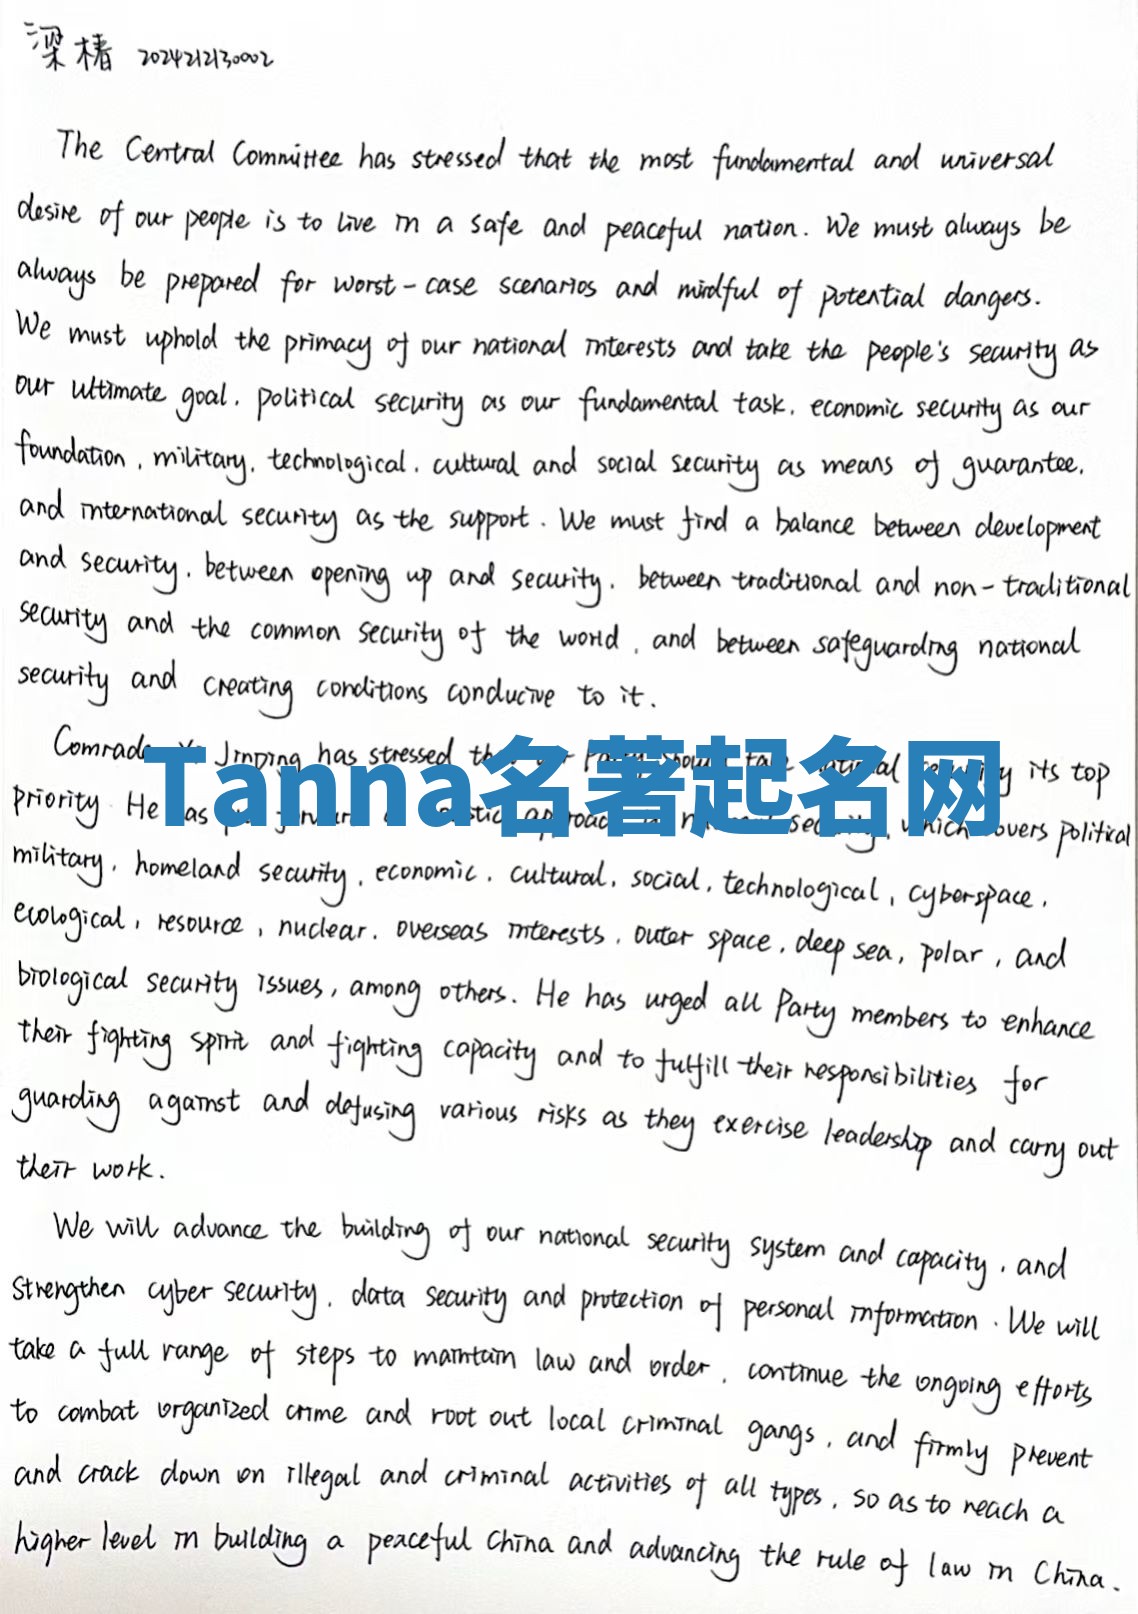 梁椿 2024212130002
The Central Committee has stressed that the most fundamental and universal
desire of our people is to live in a safe and peaceful nation. We must always be
always be prepared for worst-case scenarios and mindful of potential dangers.
We must uphold the primacy of our national interests and take the people's security as
our ultimate goal, political security as our fundamental task, economic security as our
foundation, military, technological, cultural and social security as means of guarantee,
and international security as the support. We must find a balance between development
and security, between opening up and security, between traditional and non-traditional
security and the common security of the world, and between safeguarding national
security and creating conditions conducive to it.
Comrade Jinping has stressed its top
Tanna名著起名网
priority. He which covers political
military, homeland security, economic, cultural, social, technological, cyberspace,
ecological, resource, nuclear, overseas interests, outer space, deep sea, polar, and
biological security issues, among others. He has urged all Party members to enhance
their fighting spirit and fighting capacity and to fulfill their responsibilities for
guarding against and defusing various risks as they exercise leadership and carry out
their work.
We will advance the building of our national security system and capacity, and
strengthen cyber security, data security and protection of personal information. We will
take a full range of steps to maintain law and order, continue the ongoing efforts
to combat organized crime and root out local criminal gangs, and firmly prevent
and crack down on illegal and criminal activities of all types, so as to reach a
higher level in building a peaceful China and advancing the rule of law in China.